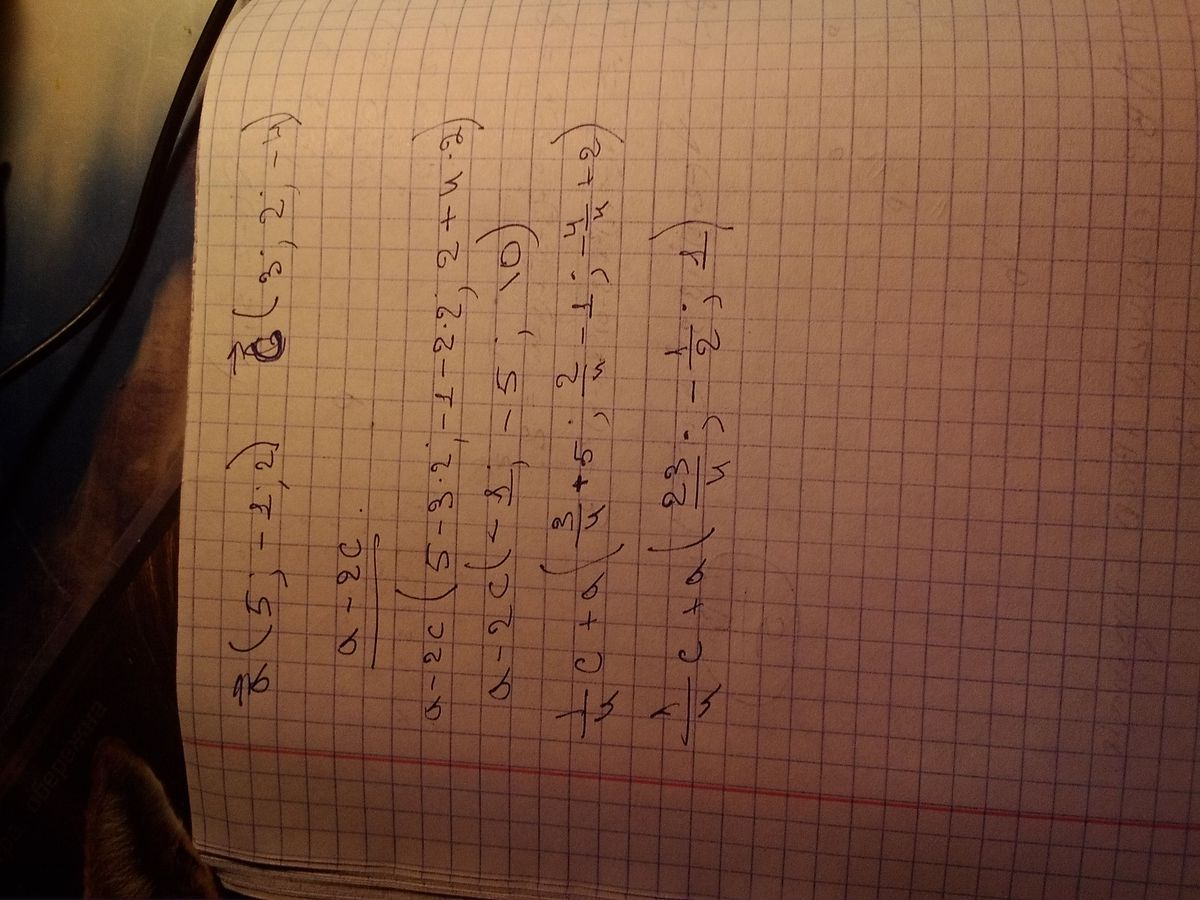 a⃗ (5; -1; 2) c⃗ (3; 2; -4)
a - 2c
a - 2c (5 - 3·2; -1 - 2·2; 2 + 4·2)
a - 2c (-1; -5; 10)
1/4 c + a (3/4 + 5; 2/4 - 1; -4/4 + 2)
1/4 c + a (23/4; -1/2; 1)